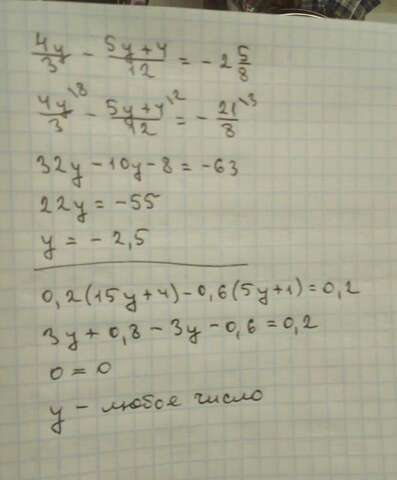 4y/3 - 5y+4/12 = -2 5/8
4y\8/3 - 5y+4\2/12 = - 21\3/8
32y - 10y - 8 = -63
22y = -55
y = - 2,5
0,2(15y+4) - 0,6(5y+1) = 0,2
3y + 0,8 - 3y - 0,6 = 0,2
0 = 0
y - любое число